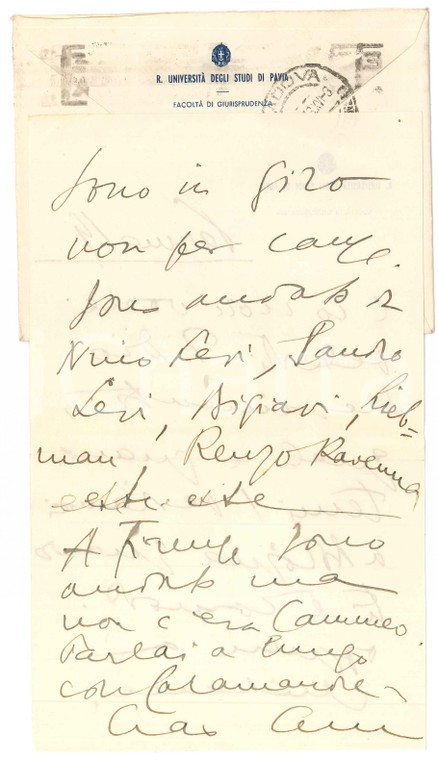 R. UNIVERSITÀ DEGLI STUDI DI PAVIA
FACOLTÀ DI GIURISPRUDENZA
Sono in giro
non per
Sono andato a
Nino Levi, Sandro
Levi, Bigiavi, Lieb=
man, Renzo Ravenna
A Firenze sono
andato ma
non c'era Cammeo.
Parlai a lungo
con Calamandrei
Ciao